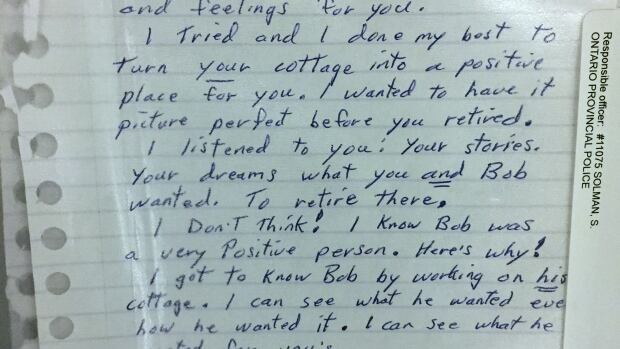 and feelings for you.
I Tried and I done my best to
turn your cottage into a positive
place for you. I wanted to have it
picture perfect before you retired.
I listened to you! Your stories.
Your dreams what you and Bob
wanted. To retire there.
I Don't Think! I Know Bob was
a very Positive person. Here's why!
I got to know Bob by working on his
cottage. I can see what he wanted eve
how he wanted it. I can see what he
for
Responsible officer: #11075 SOLMAN, S.
ONTARIO PROVINCIAL POLICE